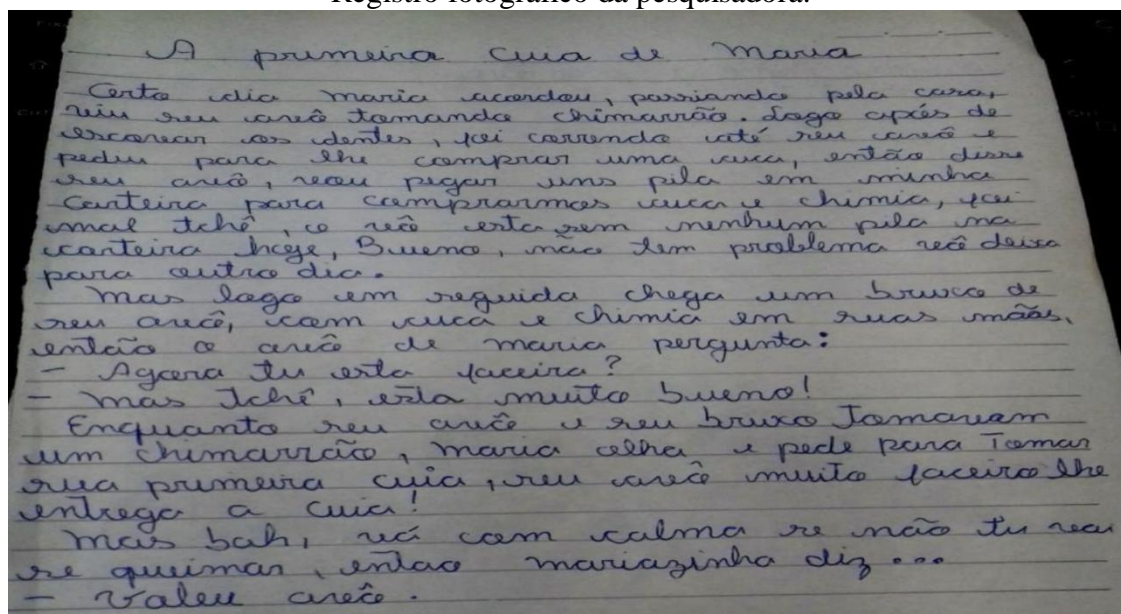 Registro fotográfico da pesquisadora.
A primeira cuia de Maria
Certo dia maria acordou, passiando pela casa,
viu seu avô tomando chimarrão. Logo após de
escovar os dentes, foi correndo até seu avô e
pediu para lhe comprar uma cuca, então disse
seu avô, vou pegar uns pila em minha
carteira para comprarmos cuca e chimia, foi
mal tchê, o vô esta sem nenhum pila na
carteira hoje, Bueno, não tem problema vô deixa
para outro dia.
Mas logo em seguida chega um bruxo de
seu avô, com cuca e chimia em suas mãos,
então o avô de maria pergunta:
- Agora tu esta faceira?
- Mas Tchê, esta muito bueno!
Enquanto seu avô e seu bruxo Tomavam
um chimarrão, maria olha e pede para Tomar
sua primeira cuia, seu avô muito faceiro lhe
entrega a cuia!
Mas bah, vá com calma se não tu vai
se queimar, entao mariazinha diz...
- Valeu avô.